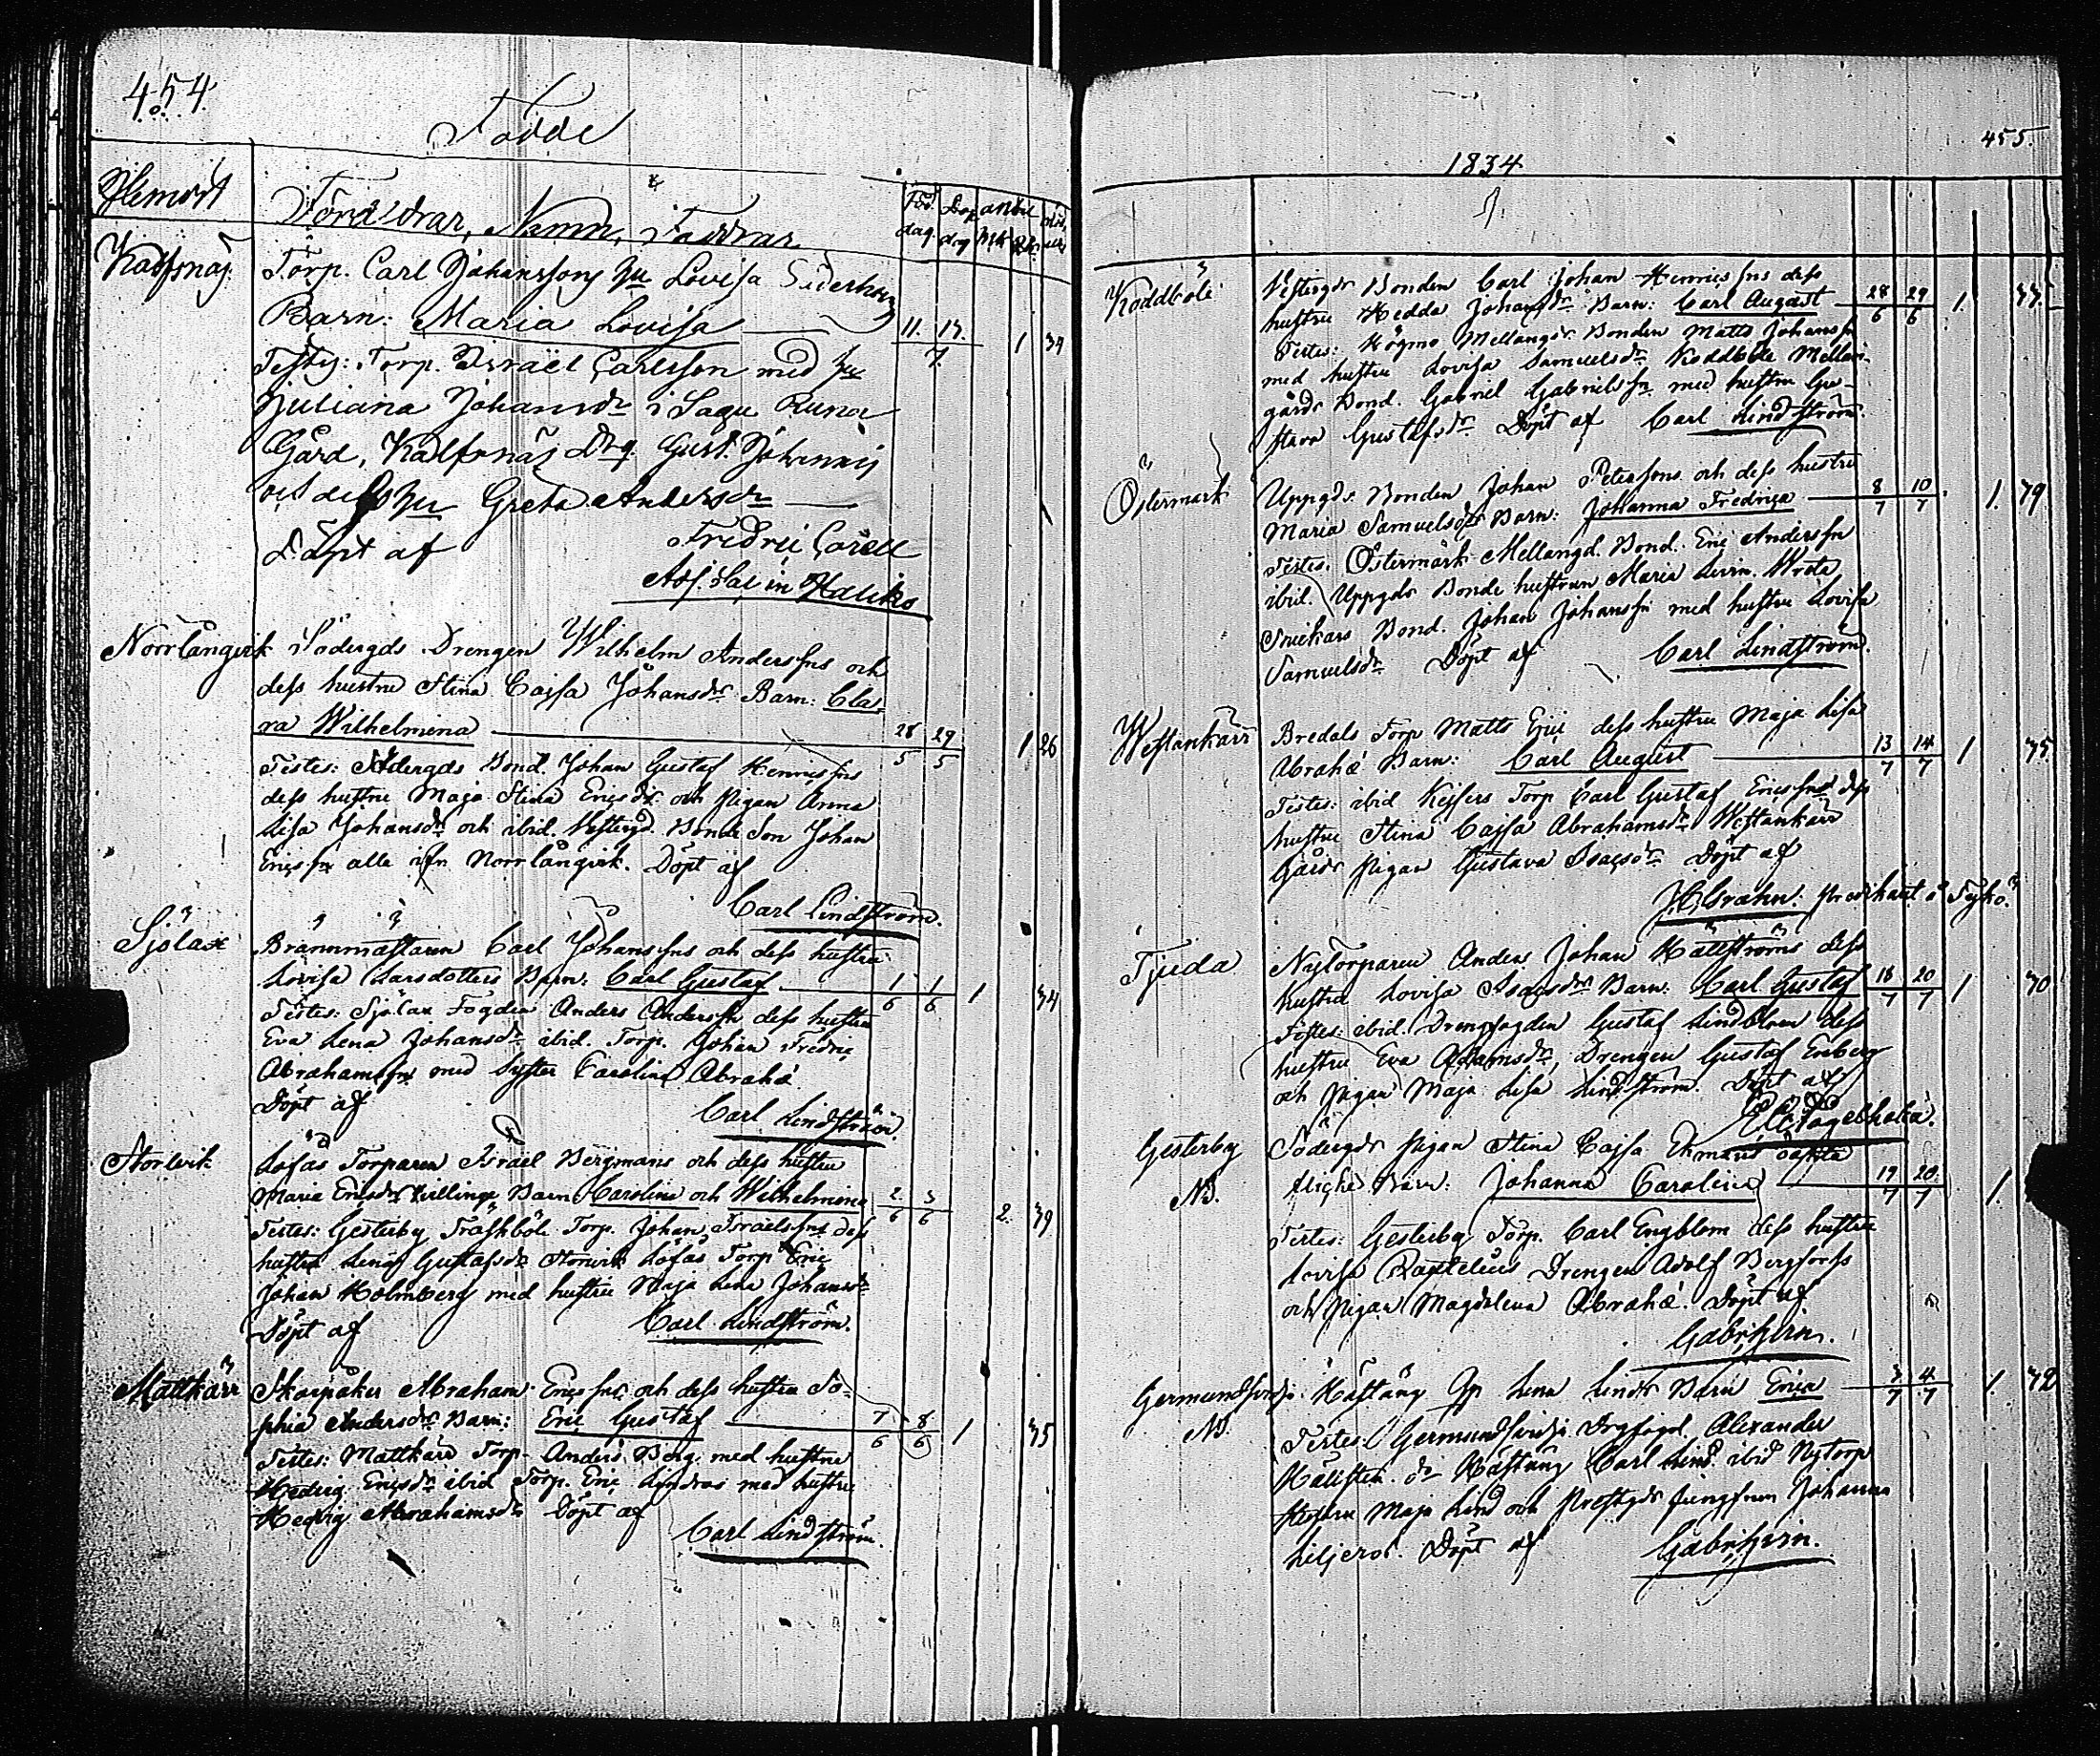 454
Födde
Hemort
Föräldrar, Namn, Faddrar
Föd. dag. Döp dag anköö Mk Qk. Mod. ald
Kalfsnäs.
Torp. Carl Johanssons hu Lovisa Söderberg
Barn: Maria Lovisa 11. 17. 1 34
7.
Testes: Torp. Israël Carlsson med hu
Juliana Johansdr i Sagu Runa
Gård, Kalfsnäs Drg. Gust. Johanss
och dess hu Greta Andersdr
Döpt af Fredric Corell
Adj. Sac. in Haliko
Norrlångvik Södergds Drengen Wilhelm Anderssns och
dess hustru Stina Cajsa Johansdrs Barn: Cla-
ra Wilhelmina 28/5 29/5 1 26
Testes: Södergds Bond. Johan Gustaf Henricssns
dess hustru Maja Stina Ericsdr och Pigan Anna
Lisa Johansdr och ibid. Westergd. Bonde Son Johan
Ericssn alla ifrn Norrlångvik. Döpt af
Carl Lindström.
Sjölax Brännmästaren Carl Johanssns och dess hustru
Lovisa Larsdotters Barn: Carl Gustaf 1/6 1/6 1 34
Testes: Sjölax Fogden Anders Anderssn dess hustru
Eva Lena Johansdr ibid. Torp. Johan Fredric
Abrahamssn med Syster Carolina Abrahd
Döpt af
Carl Lindström.
Storvik Löfås Torparen Israel Bergmans och dess hustru
Maria Ericsdrs Tvillinge Barn Carolina och Wilhelmina 2/6 3/6 2. 39
Testes: Gesterby Träskböle Torp. Johan Israelssns dess
hustru Lena Gustafsdr Storvik Löfås Torp Eric
Johan Holmberg med hustru Maja Lena Johansdr
Döpt af Carl Lindström.
Mattkärr Skarpåker Abraham Ericssns och dess hustru So-
phia Andersdrs Barn: Eric Gustaf 7/6 8/6 1 35
Testes: Mattkärr Torp. Anders Berg med hustru
Hedvig Ericsdr ibid Torp. Eric Lindros med hustru
Hedvig Abrahamsdr Döpt af
Carl Lindström.
455.
1834
Koddböle Westergds Bonden Carl Johan Henricssns dess
hustru Hedda Johansdrs Barn: Carl August 28/6 29/6 1. 33.
Testes: Högmo Mellangds Bonden Matts Johanssn
med hustru Lovisa Samuelsdr Koddböle Mellan-
gårds Bond. Gabriel Gabrielssn med hustru Gu-
stava Gustafsdr Döpt af Carl Lindström.
Östermark Uppgds Bonden Johan Peterssons och dess hustru
Maria Samuelsdrs Barn: Johanna Fredrica 8/7 10/7 1. 39
Testes. Östermark Mellangd. Bond. Eric Anderssn
ibid. Uppgds Bonde hustrun Maria Levin. Wreta
Snickars Bond. Johan Johanssn med hustru Lovisa
Samuelsdr Döpt af Carl Lindström.
Westankärr Bredals Torp Matts Eric dess hustru Maja Lisa
Abrahd Barn: Carl August 13/7 14/7 1 35.
Testes: ibid Kejsers Torp Carl Gustaf Ericssns dess
hustru Stina Cajsa Abrahamsdr Westankärr
Gårds Pigan Gustava Isacsdr Döpt af
Predikant i Tykö.
Tjuda Nytorparen Anders Johan Hällströms dess
hustru Lovisa Isacsdrs Barn: Carl Gustaf 18/7 20/7 1 30
Testes: ibid. Drengfogden Gustaf Lindblom dess
hustru Eva Adamsdr, Drengen Gustaf Enberg
och Pigan Maja Lisa Lindström. Döpt af
Gesterby Södergds Pigan Stina Cajsa Ekmans oäkta
NB. flicke Barn: Johanna Carolina 19/7 20/7 1.
Testes: Gesterby Torp. Carl Engblom dess hustru
Lovisa Drengen Adolf Bergfors
och Pigan Magdalena Abrahd. Döpt af
Germundsvedja Hästäng Lena Linds Barn Erica 3/7 4/7 1. 32
NB. Testes: Germundsvedja Drgfogd. Alexander
Hällsten dr Hästäng Carl Lind. ibid Nytorp
Hustru Maja Lind och Prestgds Jungfrun Johanna
Liljeros. Döpt af